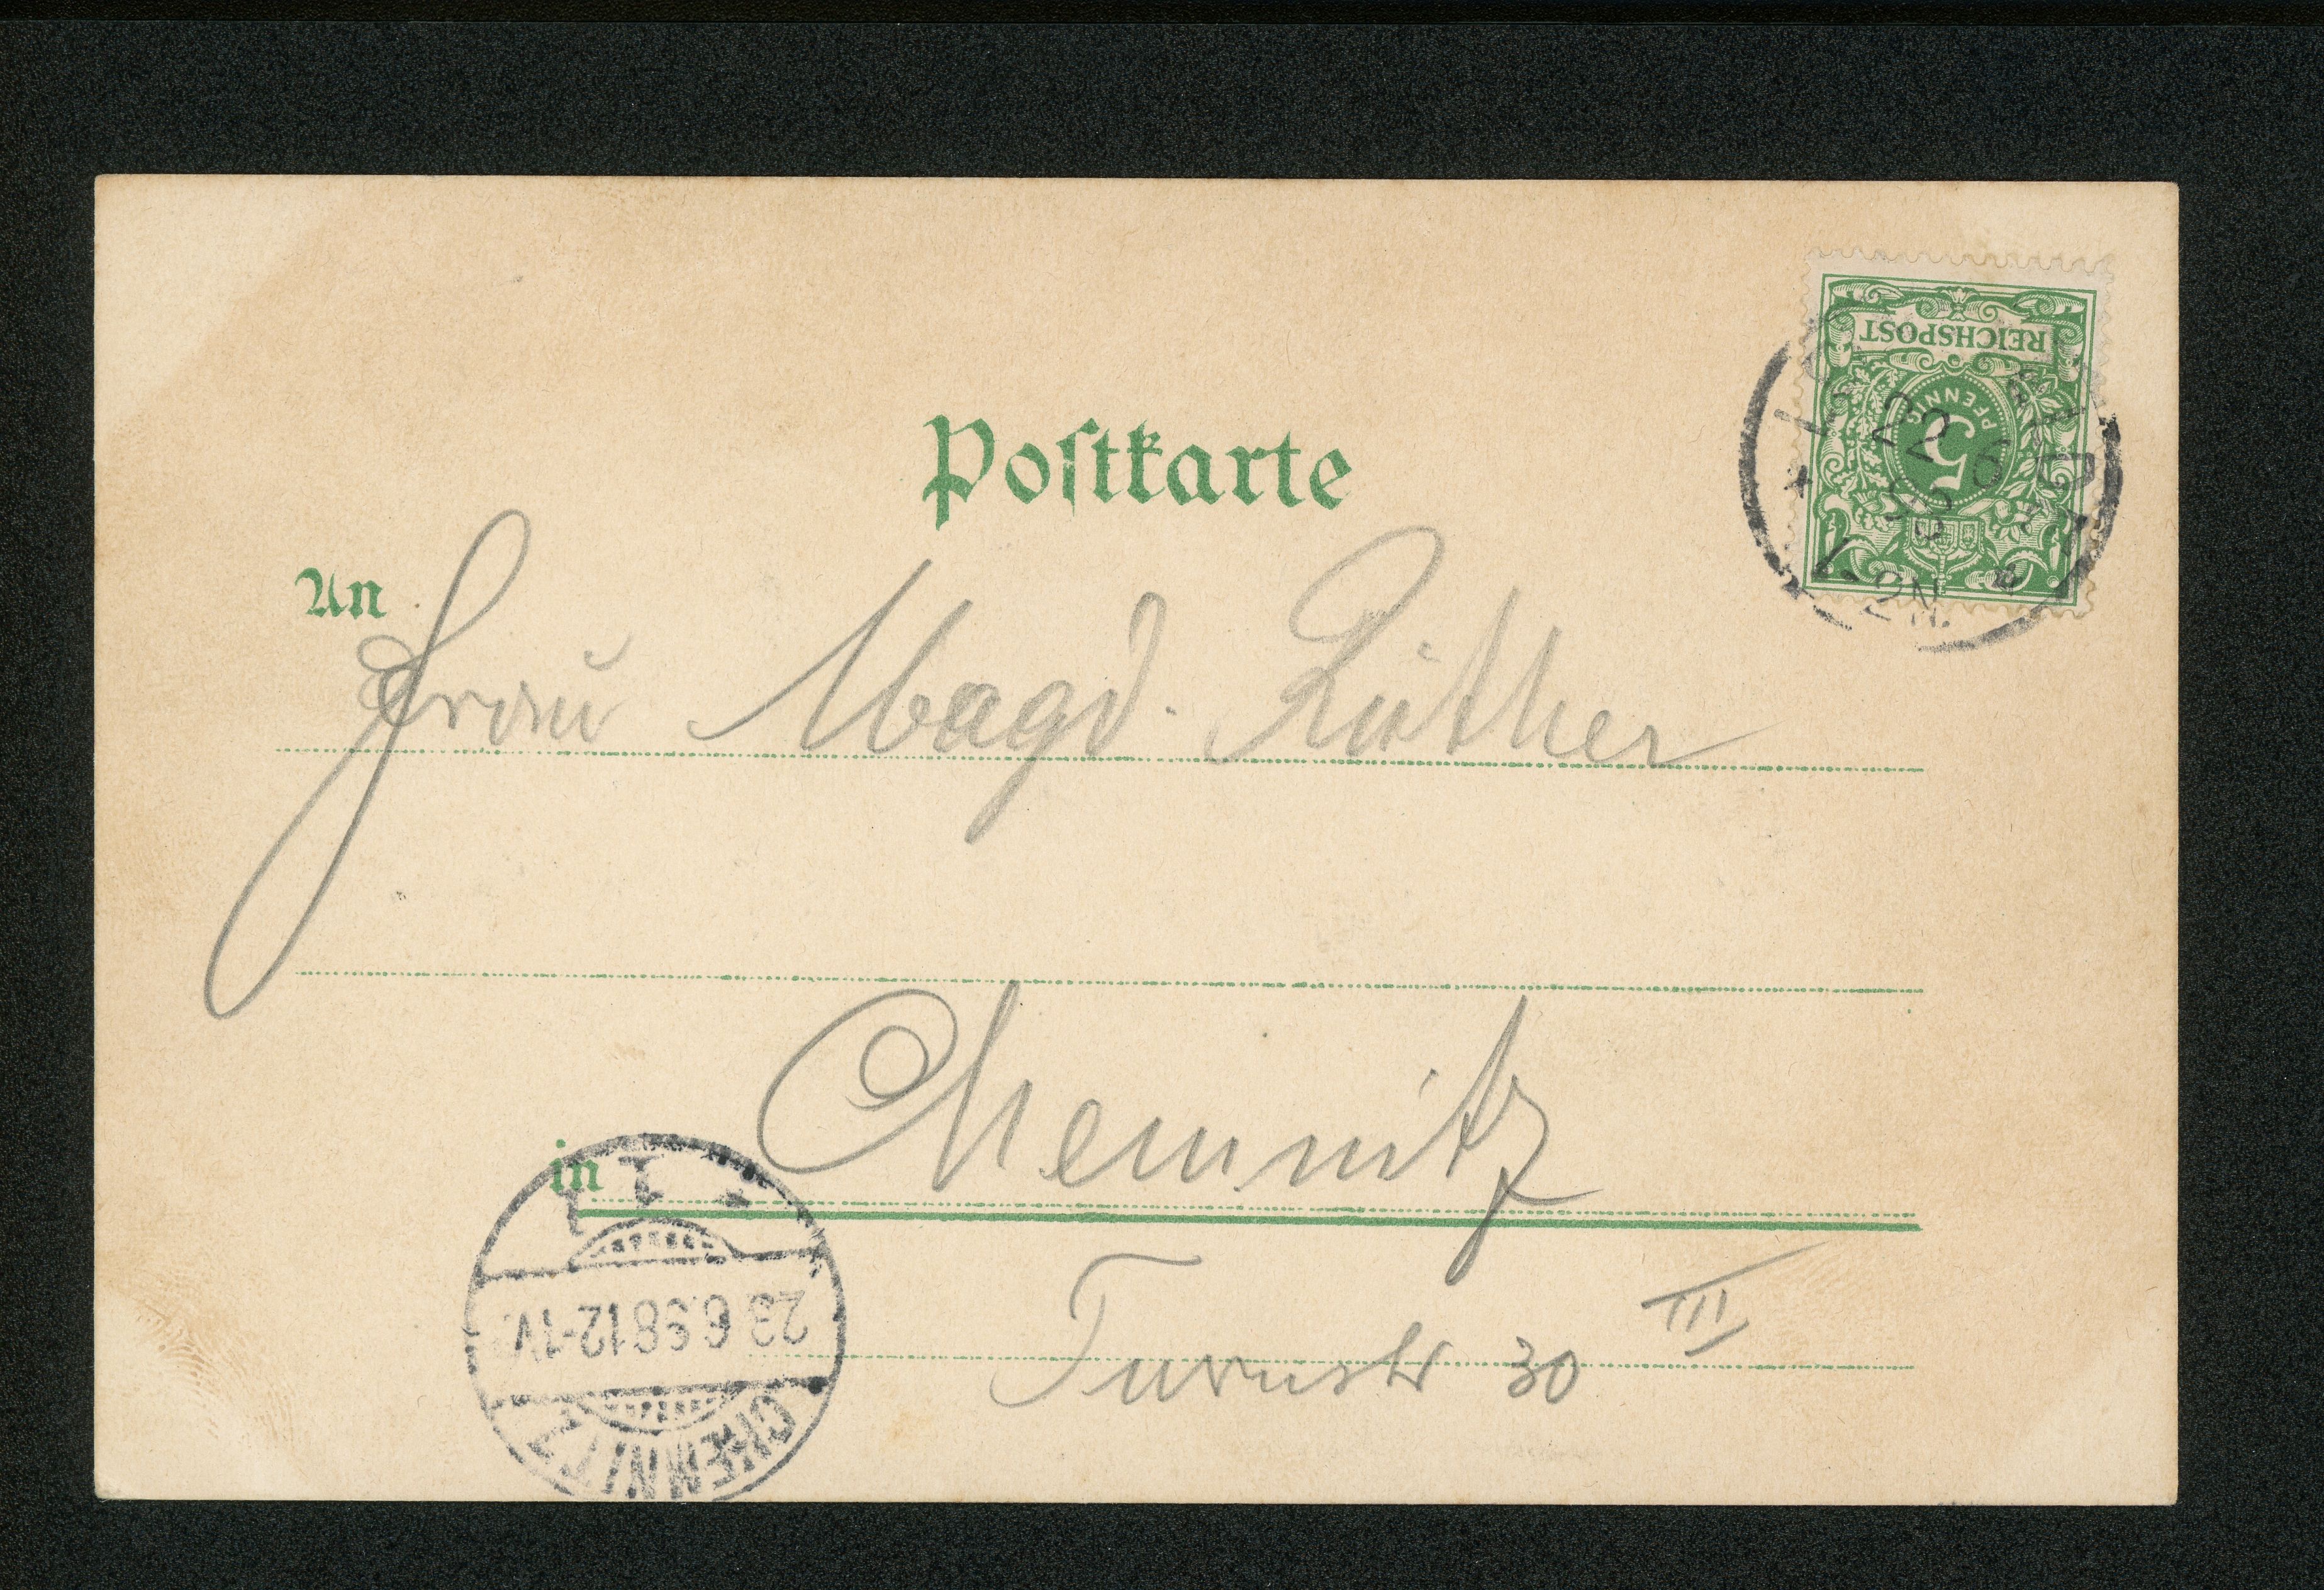 Postkarte
REICHSPOST
5
PFENNIG
22
6
98
An
Frau Magd.
in Chemnitz
Turnstr 30 III
CHEMNITZ
23.6.98 12-1V.
1